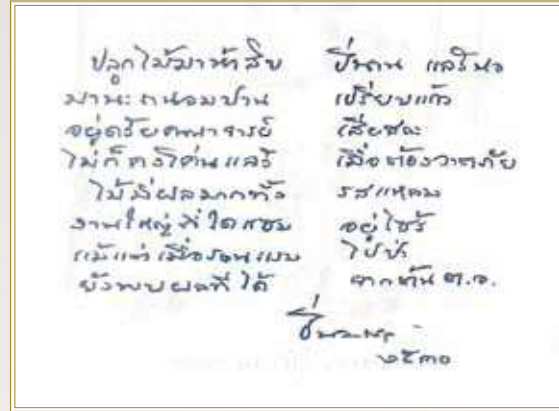 ปลูกไม้มาห้าสิบ ปีนาน แลร์นอ
มานะถนอมปาน เปรียบแก้ว
อยู่ด้วยคณาจารย์ เสียชนะ
ไม่ก็คงโค่นแลร์ เมื่อต้องวาตภัย
ไม้มีผลมากทั้ง รสแหลม
งานใหญ่ที่ใดแซม อยู่ไซร้
แม้แต่เมื่อรอนแรม ไปป่า
ยังพบผลที่ได้ จากต้น ต.จ.
๒๕๓๐